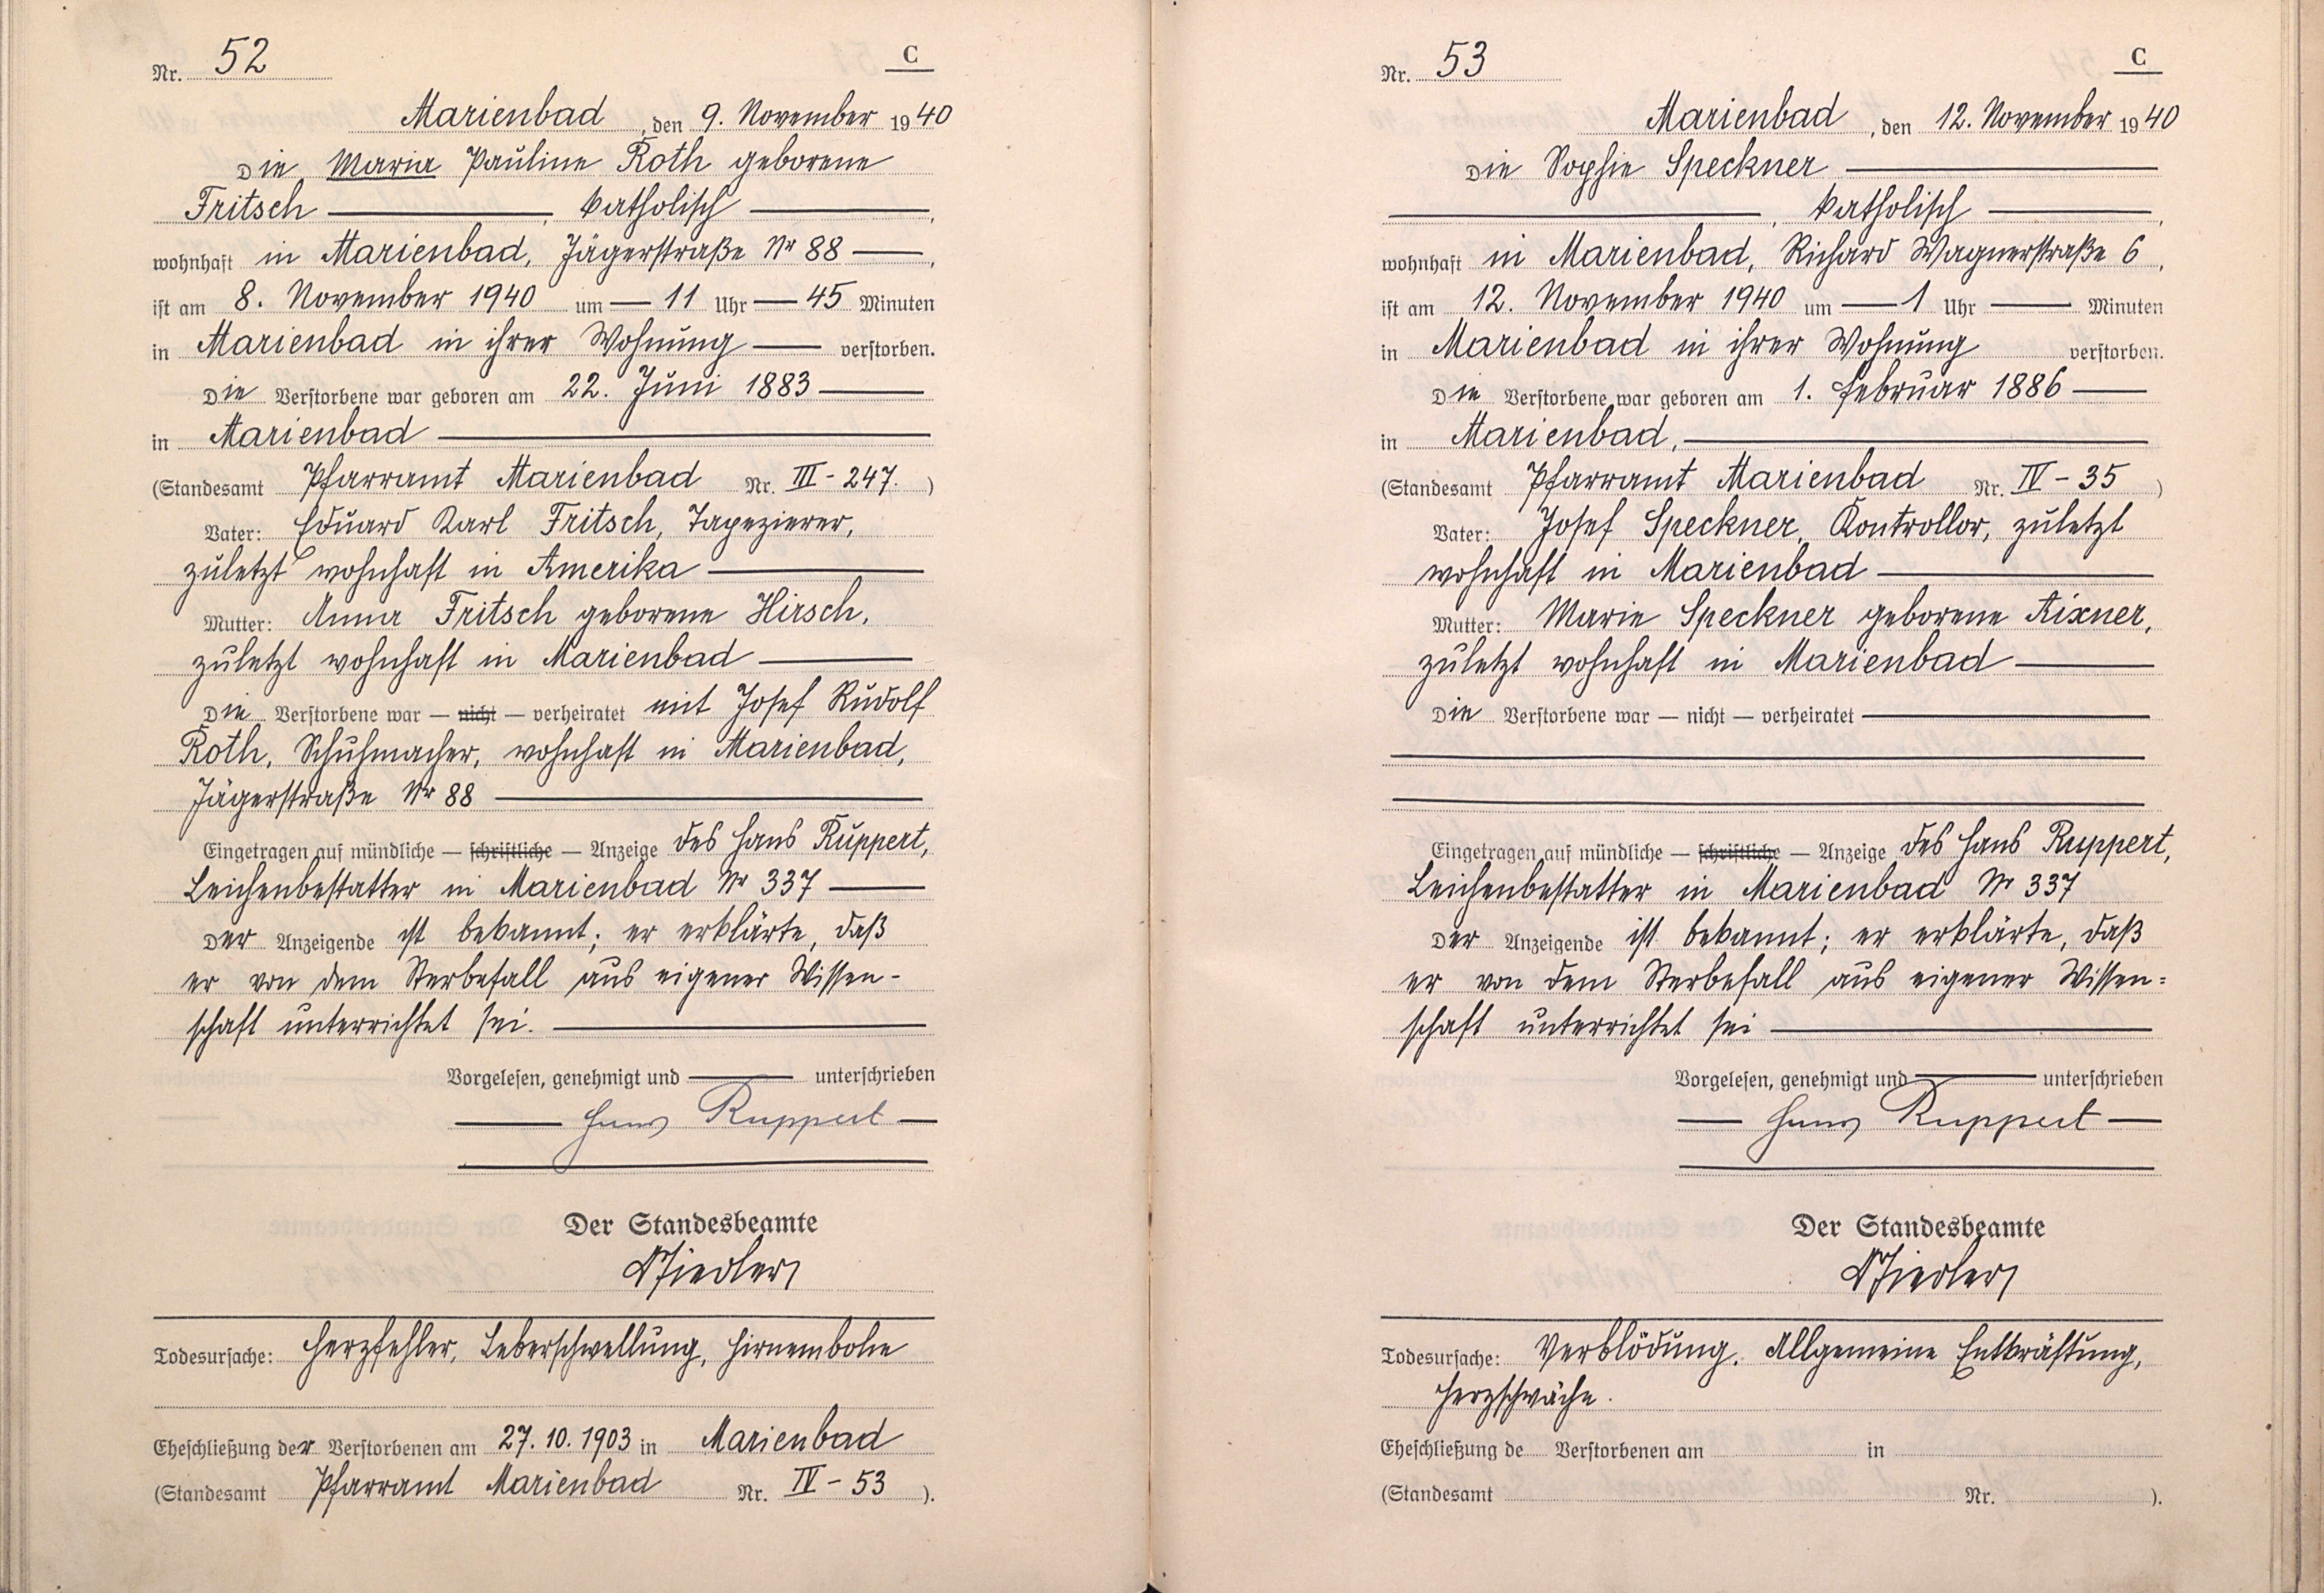 Nr. 52 C
Marienbad, den 9. November 1940
Die Maria Pauline Roth geborene
Fritsch, katholisch,
wohnhaft in Marienbad, Jägerstraße Nr 88,
ist am 8. November 1940 um 11 Uhr 45 Minuten
in Marienbad in ihrer Wohnung verstorben.
Die Verstorbene war geboren am 22. Juni 1883
in Marienbad
(Standesamt Pfarramt Marienbad Nr. III - 247.)
Vater: Eduard Karl Fritsch, Tapezierer,
zuletzt wohnhaft in Amerika
Mutter: Anna Fritsch geborene Hirsch,
zuletzt wohnhaft in Marienbad
Die Verstorbene war — nicht — verheiratet mit Josef Rudolf
Roth, Schuhmacher, wohnhaft in Marienbad,
Jägerstraße Nr 88
Eingetragen auf mündliche — schriftliche — Anzeige des Hans Ruppert,
Leichenbestatter in Marienbad Nr 337
Der Anzeigende ist bekannt; er erklärte, daß
er von dem Sterbefall aus eigener Wissen-
schaft unterrichtet sei.
Vorgelesen, genehmigt und unterschrieben
Hans Ruppert
Der Standesbeamte
Todesursache: Herzfehler, Leberschwellung, Hirnembolie
Eheschließung der Verstorbenen am 27.10.1903 in Marienbad
(Standesamt Pfarramt Marienbad Nr. IV - 53).
Nr. 53 C
Marienbad, den 12. November 1940
Die Sophie Speckner
, katholisch,
wohnhaft in Marienbad, Richard Wagnerstraße 6,
ist am 12. November 1940 um 1 Uhr Minuten
in Marienbad in ihrer Wohnung verstorben.
Die Verstorbene war geboren am 1. Februar 1886
in Marienbad,
(Standesamt Pfarramt Marienbad Nr. IV - 35)
Vater: Josef Speckner, Kontrollor, zuletzt
wohnhaft in Marienbad
Mutter: Marie Speckner geborene Aixner,
zuletzt wohnhaft in Marienbad
Die Verstorbene war — nicht — verheiratet
Eingetragen auf mündliche — schriftliche — Anzeige des Hans Ruppert,
Leichenbestatter in Marienbad Nr 337
Der Anzeigende ist bekannt; er erklärte, daß
er von dem Sterbefall aus eigener Wissen=
schaft unterrichtet sei
Vorgelesen, genehmigt und unterschrieben
Hans Ruppert
Der Standesbeamte
Todesursache: Verblödung. Allgemeine Entkräftung,
Herzschwäche.
Eheschließung de Verstorbenen am in
(Standesamt Nr. ).